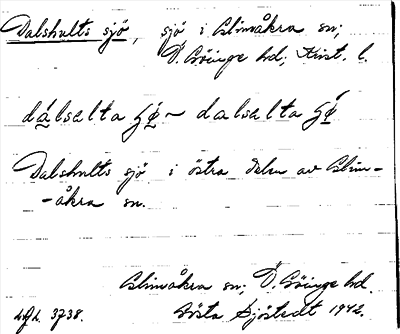 Dalshults sjö, sjö i Glimåkra sn;
Ö. Göinge hd; Krist. l.
dálsalta ʃǿ ~ dalsalta ʃǿ
Dalshults sjö i östra delen av Glim-
-åkra sn.
Glimåkra sn; Ö. Göinge hd.
3738. Gösta Sjöstedt 1942.